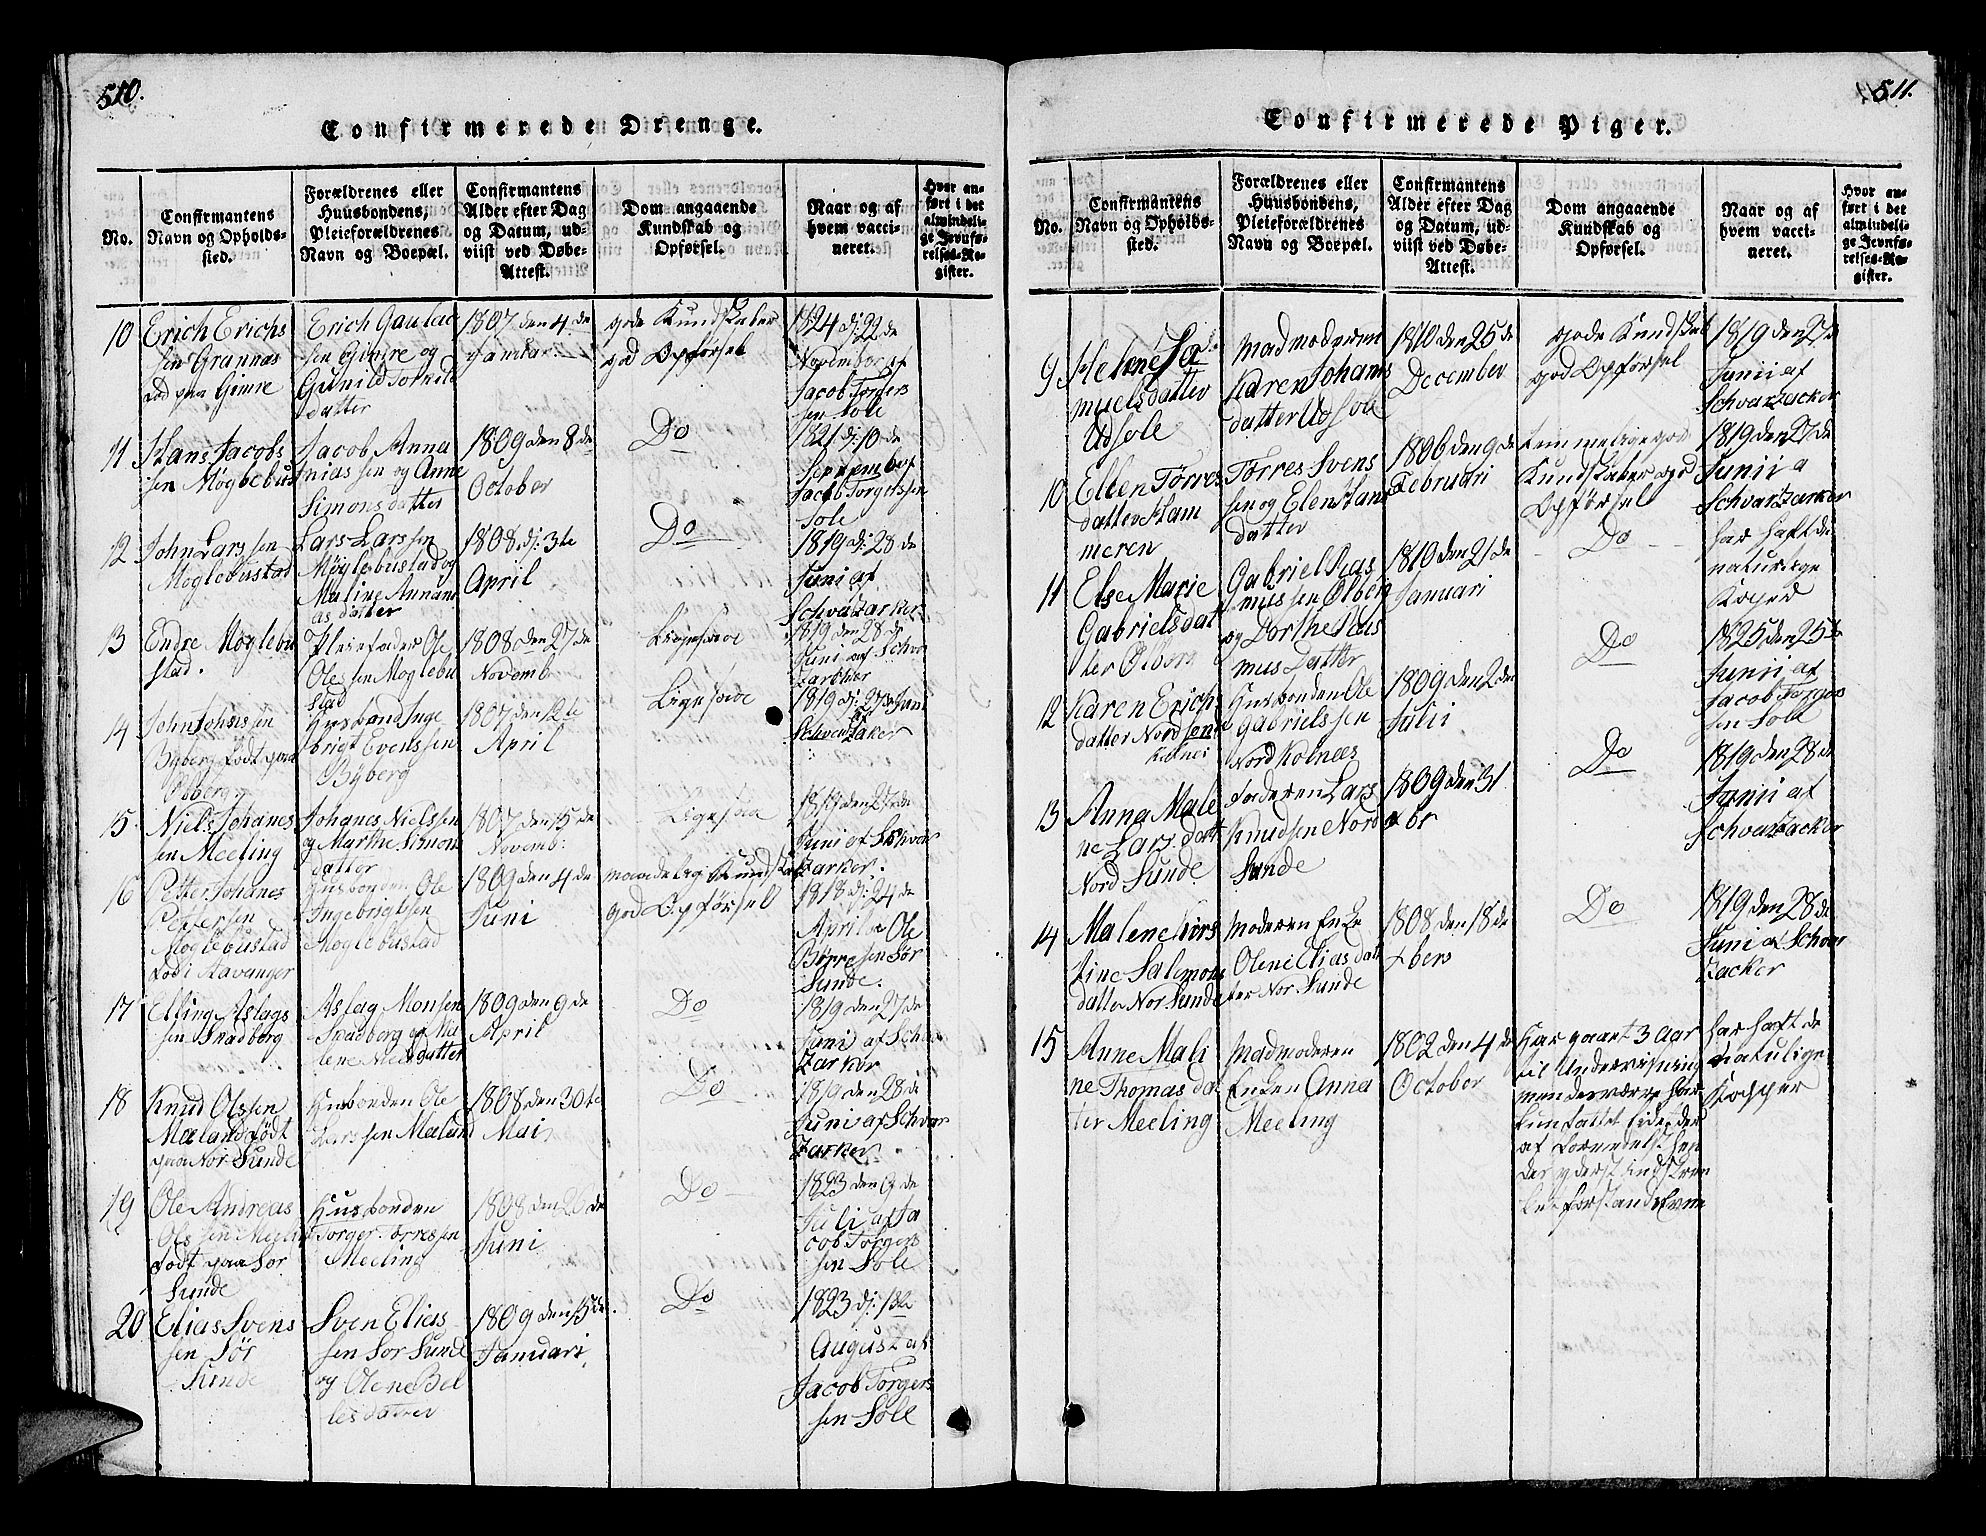 510.
Confirmerede Drenge.
No.
Confirmantens
Navn og Opholds-
sted.
Forældrenes eller
Huusbondens,
Pleieforældrenes
Navn og Boepæl.
Confirmantens
Alder efter Dag
og Datum, ud-
viist ved Døbe-
Attest.
Dom angaaende
Kundskab og
Opførsel.
Naar og af
hvem vacci-
neret.
Hvor an-
ført i det
almindeli-
ge Jevnfø-
relses-Re-
gister.
10
Erich Erichs
sen Grannæs
Gimre
Erich Gaulac
sen Gimre og
Gunild Tolnils
datter
1807 den 4de
Januar
gode Kundskaber
god Opførsel
1824 d: 22de
November af
Jacob Torgers
sen Sole
11
Hans Jacobs
sen Møglebus
Jacob Anna
niassen og Anne
Simonsdatter
1809 den 8de
October
Do
1821 d: 10de
September
Jacob Torgerssen
Sole
12
John Larssen
Møglebustad
Lars Larssen
Møglebustad og
Maline Annani
asdatter
1808 d: 3te
April
Do
1819 d: 28de
Juni af
Schvatzarker
13
Endre Møglebu
stad.
Pleiefader Ole
Olessen Moglebu
stad
1808 den 27de
Novemb
Ligesaa
1819 den 28de
Juni af Schva
tzarker
14
John Johnssen
Byberg født paa
Ølberg
Husband Inge
brigt Evenssen
Byberg
1807 den 12te
April
Ligesaa
1819 d: 27de Juni
af
Schvartzaker
15
Niels Johanes
sen Meeling
Johanes Nielssen
og Marthe Simons
datter
1807 den 15de
Novemb:
Ligesaa
1819 den 27de
Juni af Schva
tzarker.
16
Petter Johanes
Pettersen
Møglebustad
Husbonden Ole
Ingebrigtsen
Moglebustad
1809 den 4de
Juni
maadelig Kundskab
god Opførsel
1818 d: 24de
April a Ole
Børresen Sør
Sunde.
17
Elling Aslags
sen Snadberg
Aslag Monsen
Snadberg og Ma
lene Nielsdatter
1809 den 9de
April
Do
1819 den 27de
Juni af Schva
tzarker
18
Knud Olssen
Mæland født
paa Nor Sunde
Husbonden Ole
Larssen Mælund
1808 den 30te
Mai
Do
1819 den 28de
Juni af Schvar
tzarker
19
Ole Andreas
Olssen Meeli
født paa Sør
Sunde
Husbonden
Torger Tørressen
Meeling
1808 den 26de
Juni
Do
1823 den 9de
Juli af Ja
cob Torgers
sen Sole
20
Elias Svens
sen Sør
Sunde
Sven Elias
sen Sør Sunde
og Olene Bel
lesdatter
1809 den 15de
Januari
Do
1823 d: 13te
August af
Jacob Torgers
sen Sole
511.
Confirmerede Piger.
No.
Confirmantens
Navn og Opholds-
sted.
Forældrenes eller
Huusbondens,
Pleieforældrenes
Navn og Boepæl.
Confirmantens
Alder efter Dag
og Datum, ud-
viist ved Døbe-
Attest.
Dom angaaende
Kundskab og
Opførsel.
Naar og af
hvem vacci-
neret.
Hvor an-
ført i det
almindeli-
ge Jevnfø-
relses-Re-
gister.
9
Helene Sa
muelsdatter
Udsole
Madmoderen
Karen Johans
datter Udsole
1810 den 25de
December
gode Kundskab
god Opførsel
1819 den 27de
Junii af
Schvarzacker
10
Ellen Tørres
datter Ham
meren
Tørres Svens
sen og Elen Hans
datter
1806 den 9de
Februari
temmelige god
Kundskaber god
Opførsel
1819 den 27de
Junii a
Schvartzarker
11
Else Marie
Gabrielsdat
ter Ølbern
Gabriel Ras
mussen Ølberg
og Dorthe Ras
mus Datter
1810 den 21de
Januari
Do
har haft de
naturlige
Koper
12
Karen Erichs
datter Nordsen
Kolnes
Husbonden Ole
Gabrielssen
Nord Kolnæs
1809 den 2den
Julii
Do
1825 den 25de
Junii af
Jacob Torgers
sen Sole
13
Anna Male
ne Lars datt
Nord Sunde
Faderen Lars
Knudsen Nord
Sunde
1809 den 31
br
Do
1819 den 28de
Junii af
Schvarzacker
14
Malene Kirs
tine Salemons
datter Nor Sunde
Moderen Enke
Olene Elias datt
ter Nor Sunde
1808 den 18de
bers
Do
1819 den 28de
Juni af Schvar
zacker
15
Anne Mali
ne Thomas dat
ter Meeling
Madmoderen
Enken Anna
Meeling
1802 den 4de
October
Har gaaet 3 Aar
til Undervisning
af
Forstands Evne
har haft de
naturlige
Kopper